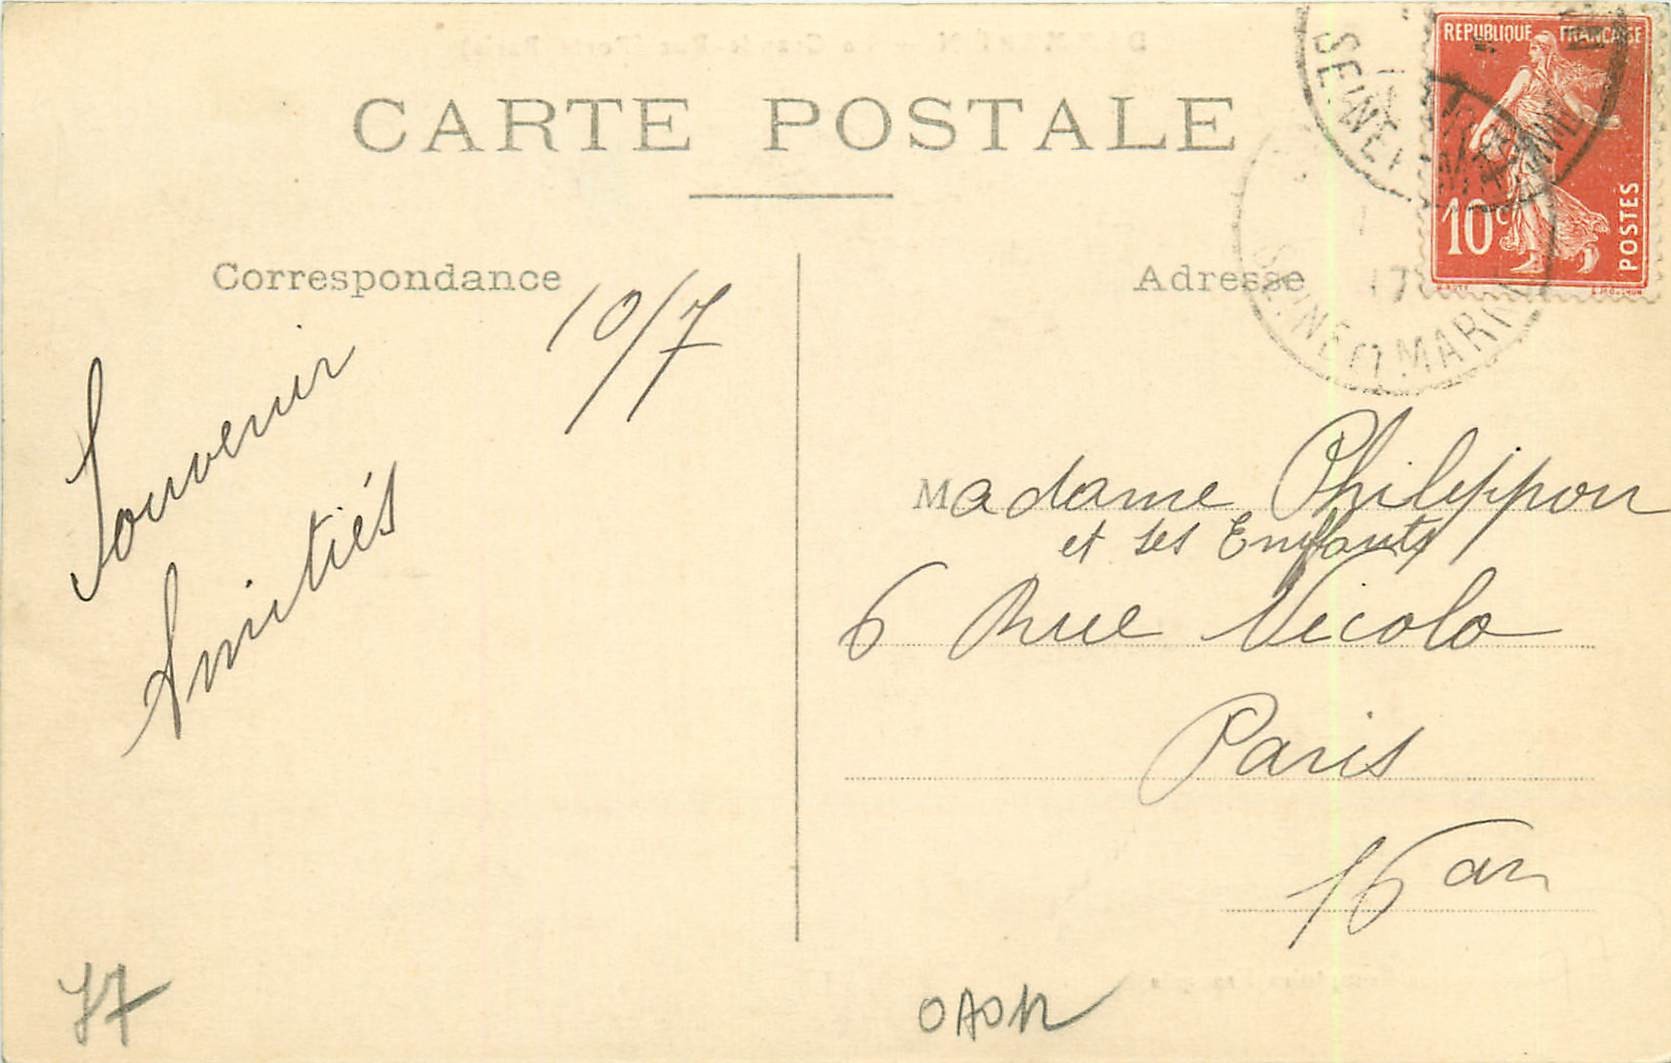 CARTE POSTALE
REPUBLIQUE FRANÇAISE
10c
POSTES
SEINE ET MARNE
SEINE ET MARNE
17
Correspondance
10/7
Souvenir
Amitiés
Adresse
Madame Philippon
et ses Enfants
6 Rue Nicolo
Paris
16 arr
77